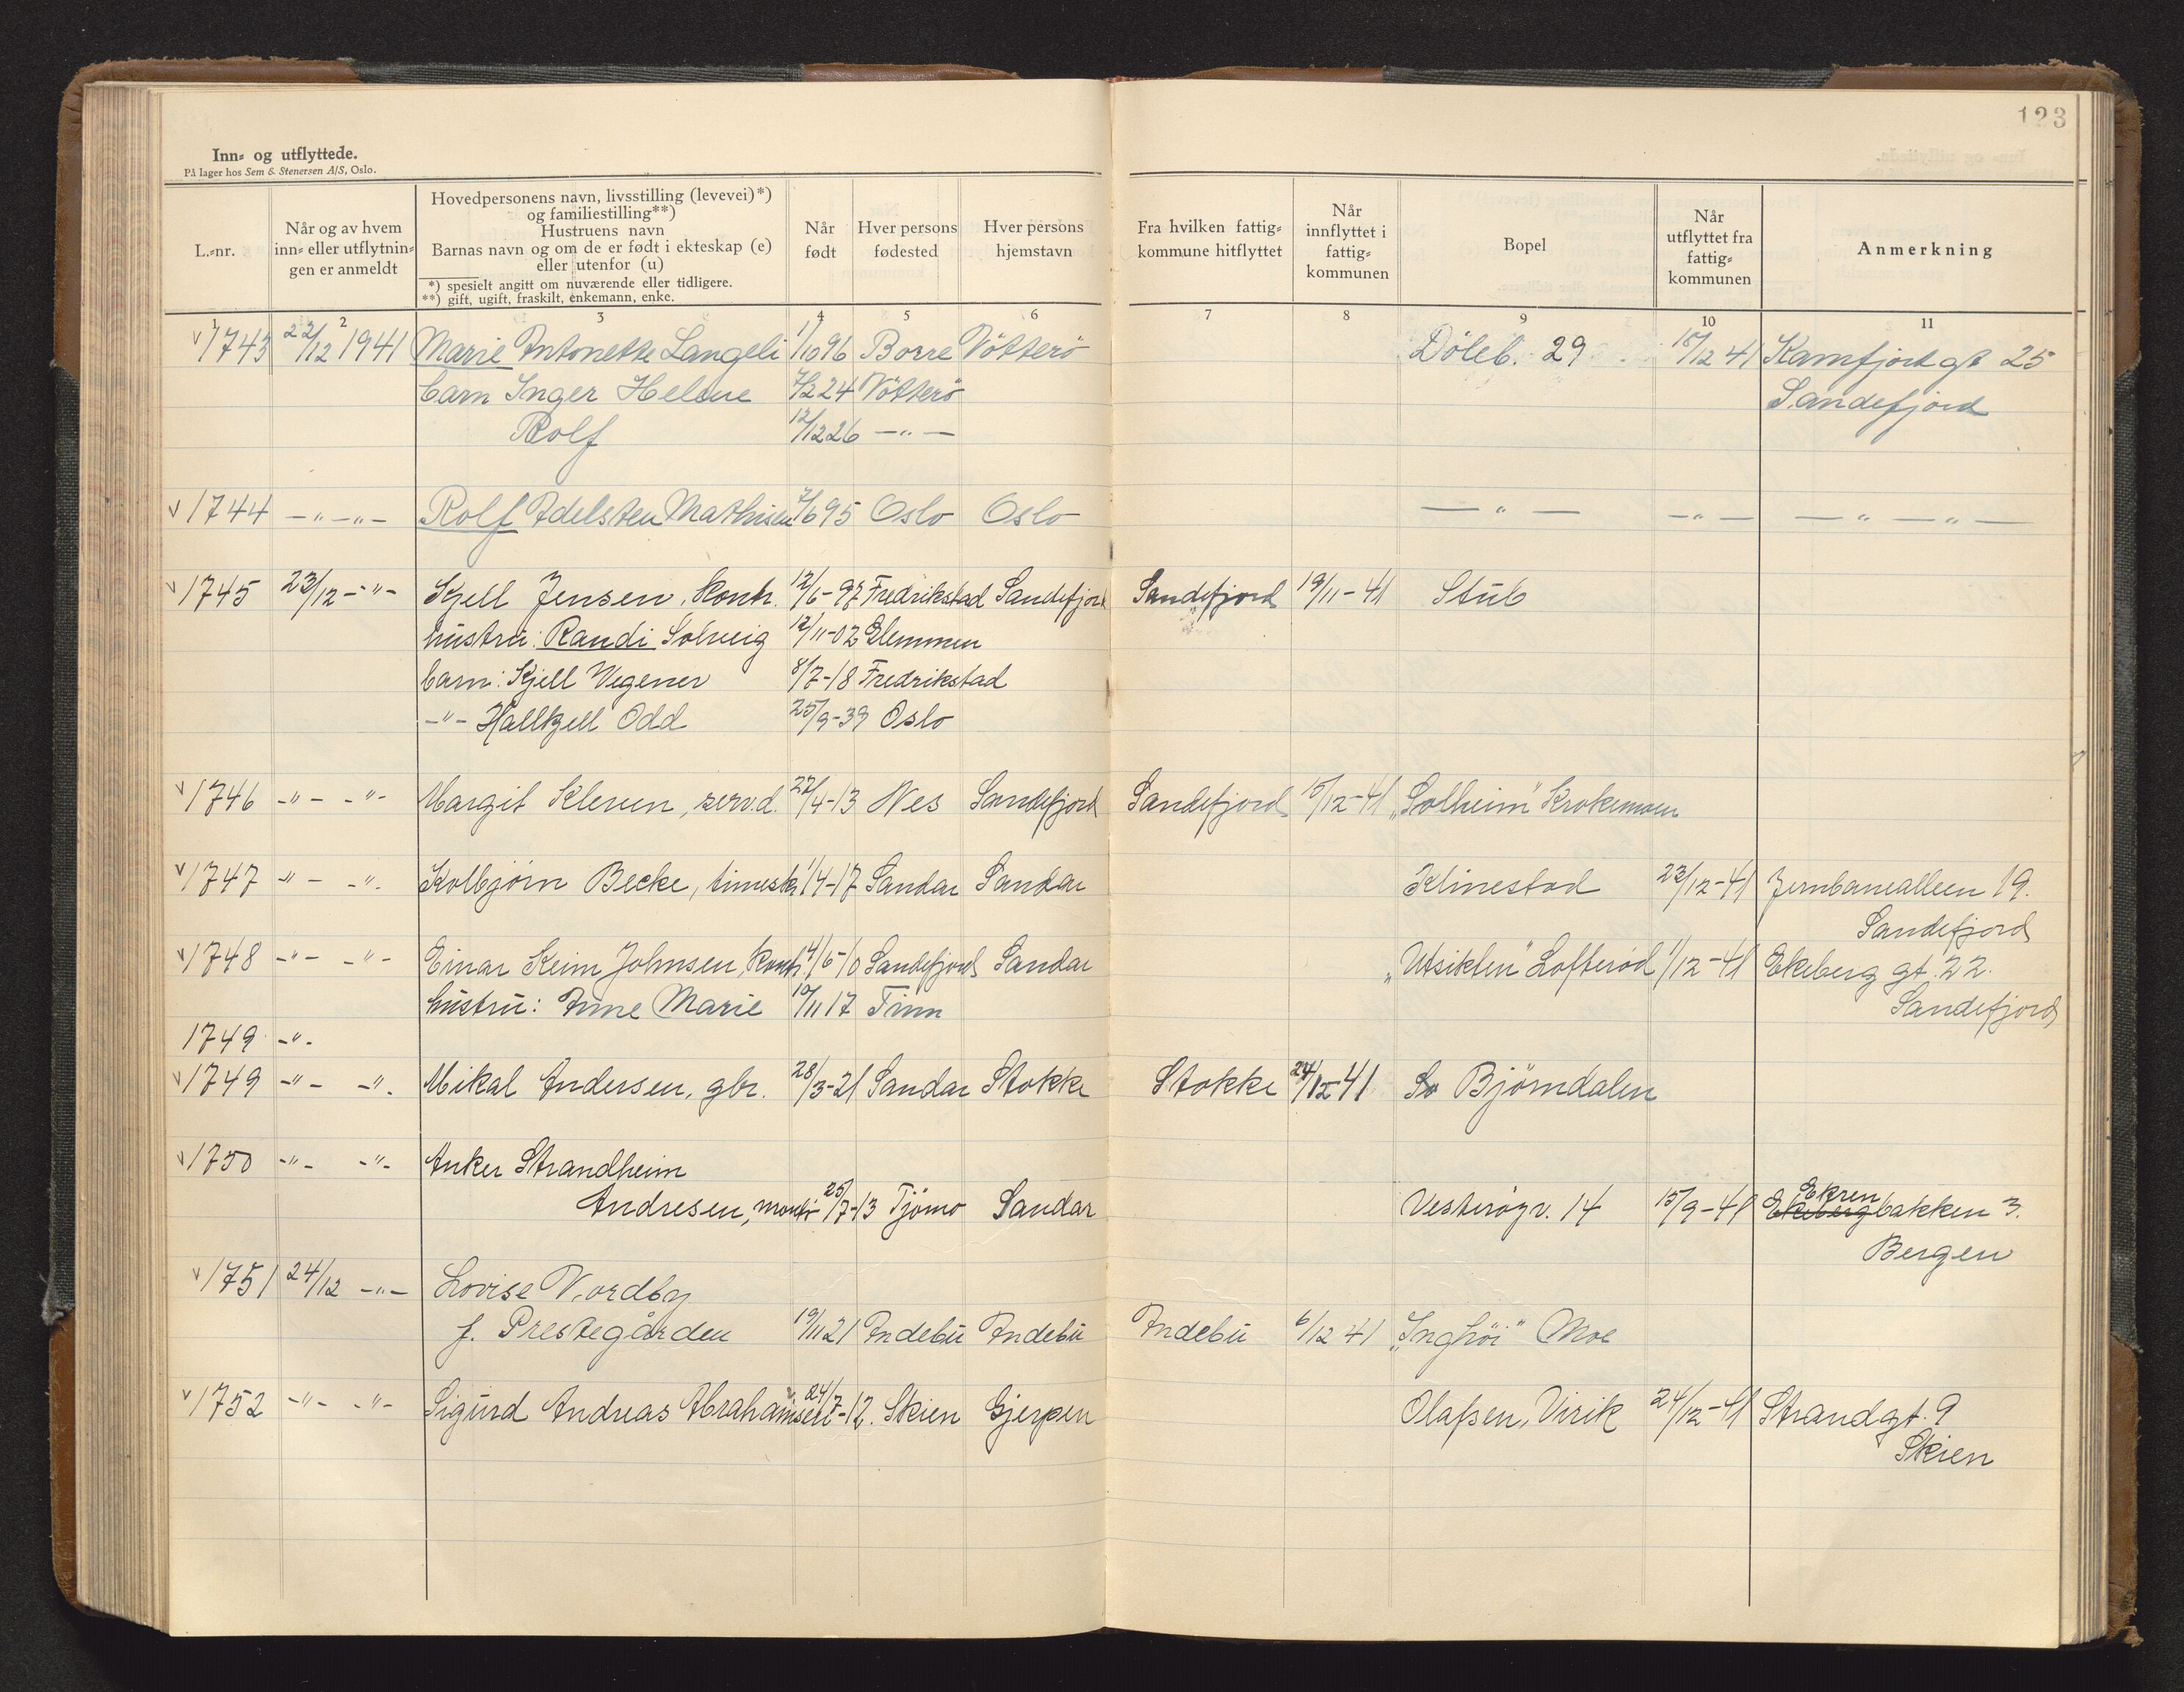 123
Inn= og utflyttede.
På lager hos Sem & Stenersen A/S, Oslo.
L.=nr.
Når og av hvem inn= eller utflytnin= gen er anmeldt
Hovedpersonens navn, livsstilling (levevei)*) og familiestilling**)
Hustruens navn
Barnas navn og om de er født i ekteskap (e) eller utenfor (u)
*) spesielt angitt om nuværende eller tidligere.
**) gift, ugift, fraskilt, enkemann, enke.
Når født
Hver persons fødested
Hver persons hjemstavn
Fra hvilken fattig= kommune hitflyttet
Når innflyttet i fattig= kommunen
Bopel
Når utflyttet fra fattig= kommunen
Anmerkning
1 2 3 4 5 6 7 8 9 10 11
v 1743 22/12 1941 Marie Antonette Langeli 1/10 96 Borre Nøtterö Döleb. 29 15/12 41 Kamfjordgt 25
barn Inger Helene 7/2 24 Nøtterö Sandefjord
Rolf 12/12 26 —"—
v 1744 —"—"— Rolf Adelsten Mathisen 7/6 95 Oslo Oslo —"— —"— —"—"—
v 1745 23/12 -"- Kjell Jensen, kontr. 12/6-97 Fredrikstad Sandefjord Sandefjord 19/11-41 Stub
hustru: Randi Solveig 12/11-02 Glemmen
barn: Kjell Wegener 8/7-18 Fredrikstad
-"- Hallkjell Odd 25/9-39 Oslo
v 1746 -"- -"- Margit Kleven, serv.d. 22/4-13 Nes Sandefjord Sandefjord 15/12-41 „Solheim" Krokemoen
v 1747 -"- -"- Kolbjørn Becke, timeskr. 1/4-17 Sandar Sandar Klinestad 23/12-41 Jernbanealleen 19.
Sandefjord
v 1748 -"- -"- Einar Keim Johnsen, kontr. 4/6-10 Sandefjord Sandar „Utsikten" Lofterød 1/12-41 Ekeberg gt. 22.
hustru: Anne Marie 10/11 17 Tinn Sandefjord
1749 -"-
v 1749 -"- -"- Mikal Andersen, gbr. 28/3-21 Sandar Stokke Stokke 24/12-41 Sø Björndalen
v 1750 -"- -"- Anker Strandheim
Andresen, montør 25/7-13 Tjömo Sandar Vesterøyv. 14 15/9-41 Ekeberg Ekren bakken 3.
Bergen
v 1751 24/12 -"- Lovise Nordby
f. Prestegården 19/11 21 Andebu Andebu Andebu 6/12 41 „Inghöi" Moe
v 1752 -"- -"- Sigurd Andreas Abrahamsen 24/7-12. Skien Gjerpen Olafsen, Virik 24/12-41 Strandgt. 9
Skien